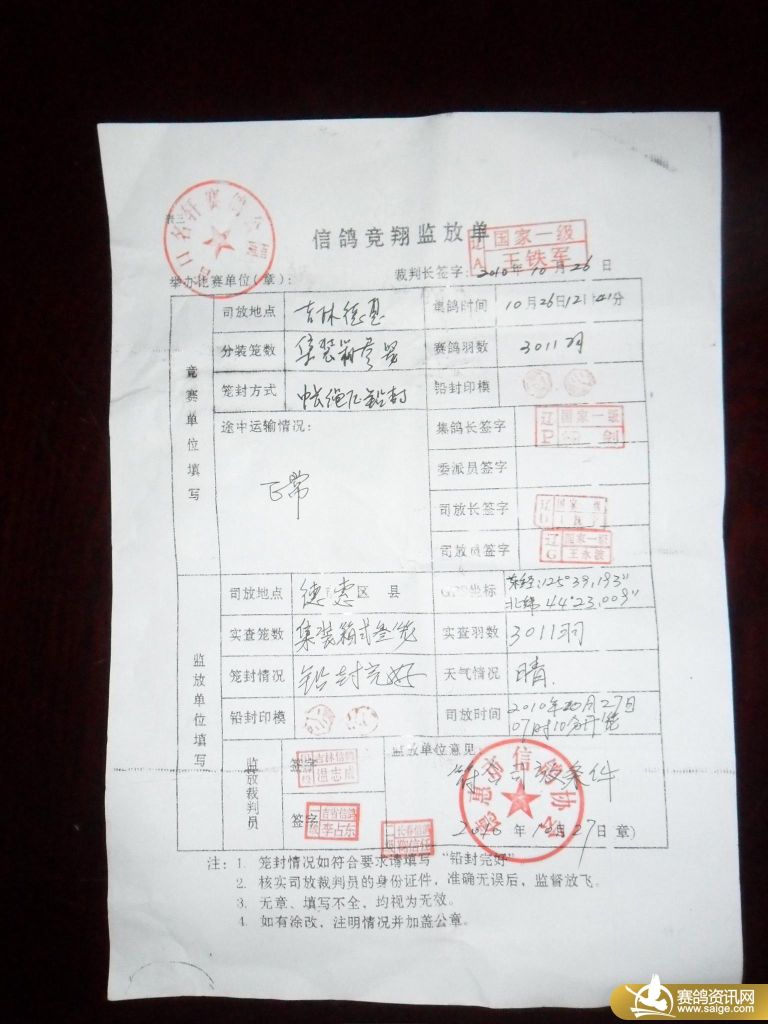 表三
信鸽竞翔监放单
国家一级
辽A 王铁军
举办比赛单位(章):
裁判长签字: 2010年10月26日
竞赛单位填写
司放地点 吉林德惠
集鸽时间 10月26日12时41分
分装笼数 集装箱叁笼
赛鸽羽数 3011羽
笼封方式
铅封印模
途中运输情况:
正常
集鸽长签字 辽P 国家一级
委派员签字
司放长签字 辽 国家一级
司放员签字 辽G 国家一级 王永波
监放单位填写
司放地点 德惠 区 县
GPS坐标 东经:125°39,193"
北纬44°23,009"
实查笼数 集装箱式叁笼
实查羽数 3011羽
笼封情况 铅封完好
天气情况 晴.
铅封印模
司放时间 2010年10月27日
07时10分开笼
监放裁判员
签字 吉林信鸽 温志成
签字 吉省信鸽 李占东
长春信鸽
监放单位意见:
符合司放条件
2010年10月27日 章)
注: 1. 笼封情况如符合要求请填写 “铅封完好”
2. 核实司放裁判员的身份证件，准确无误后，监督放飞。
3. 无章、填写不全，均视为无效。
4. 如有涂改，注明情况并加盖公章。
赛鸽资讯网
www.saige.com